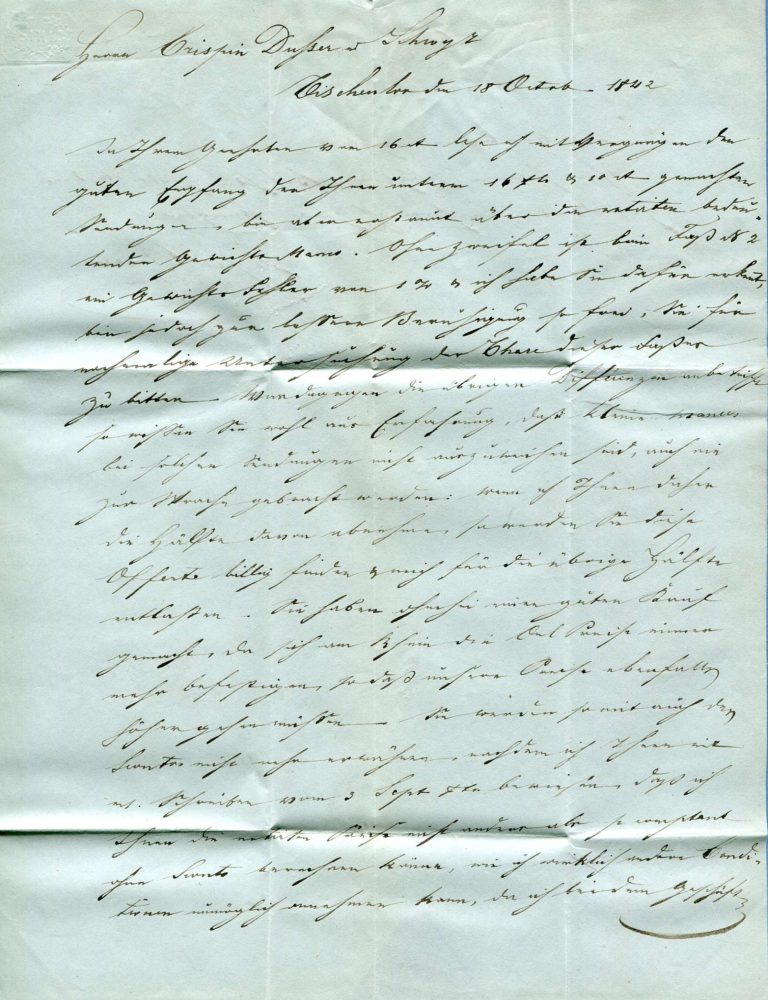 Herrn Crispin Dusser in Schwyz
den 18 Octob. 1842
In Ihrem Geehrten vom 16 ct lese ich mit Vergnügen den
guten Empfang der Ihnen unterm 16 & 10 ct gemachten
Sendungen, bin aber erstaunt über den notirten bedeu-
tenden Gewichts Manco. Ohne Zweifel ist beim Faß N 2
ein Gewichts Fehler von 1 & ich habe Sie dafür erkent,
bin jedoch zur bessern Beruhigung so frei, Sie für
nochmalige Untersuchung der Thara dieses Faßes
zu bitten. Was dagegen die übrigen Differenzen anbetrifft
so wissen Sie wohl aus Erfahrung, daß kleine mancos
bei solchen Sendungen nicht auszuweichen sind, auch nie
zur Sprache gebracht werden: wenn ich Ihnen daher
die Hälfte davon abnehme, so werden Sie diese
Offerte billig finden & mich für die übrige Hälfte
entlaßen. Sie haben ohnehin einen guten Kauf
gemacht, da sich am Rhein die Oel Preise immer
mehr befestigen, so daß unsere Preise ebenfalls
höher gehen müßen. Sie werden somit auch den
Sconto nicht mehr erwähnen, nachdem ich Ihnen mit
m. Schreiben vom 3 Sept bewiesen, daß ich
Ihnen die notirten Preise nicht anders als per comptant
ohne Sconto berechnen könne, wie ich wirklich andere Condi-
tionen unmöglich annehmen kann, da ich bei dem Geschäft